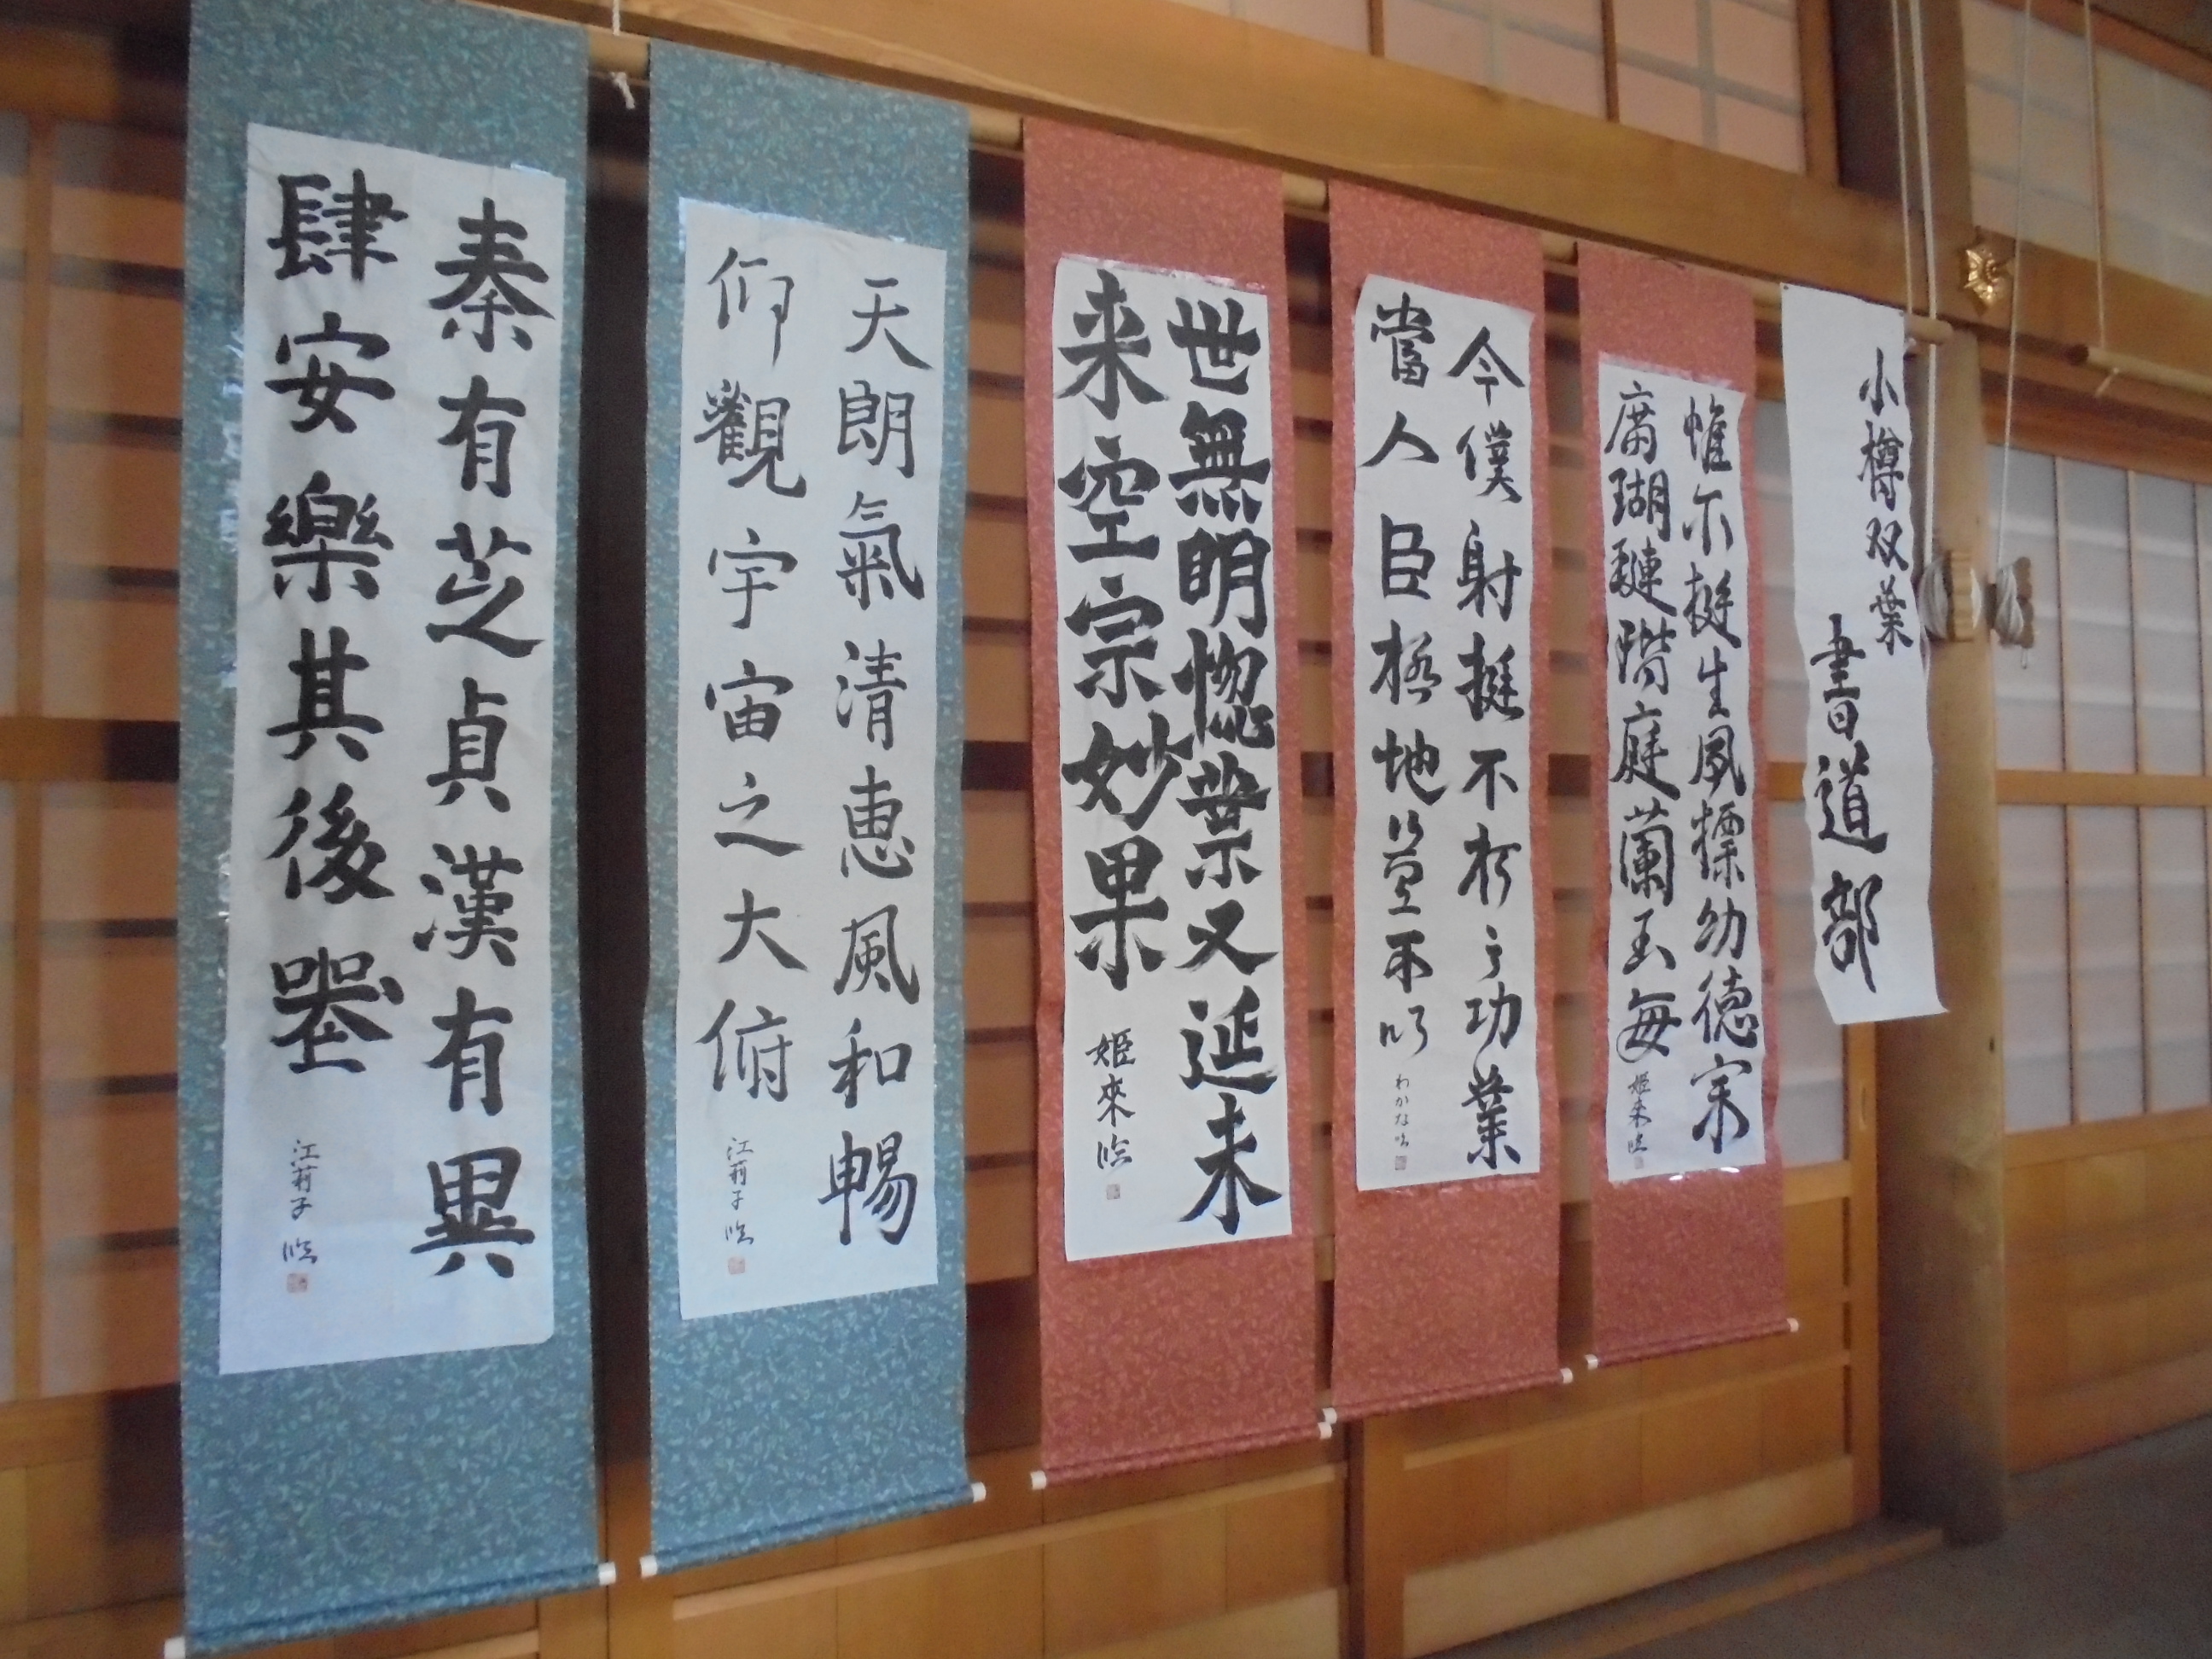 小樽双葉
書道部
惟尓挺生夙標幼德宗
廟瑚璉階庭蘭玉每
姫来臨
今僕射挺不朽之功業
當人臣極地豈不以
わかな臨
世無明惚業又延未
来空宗妙果
姫來臨
天朗氣清惠風和暢
仰觀宇宙之大俯
江莉子臨
秦有芝貞漢有異
肆安樂其後
江莉子臨